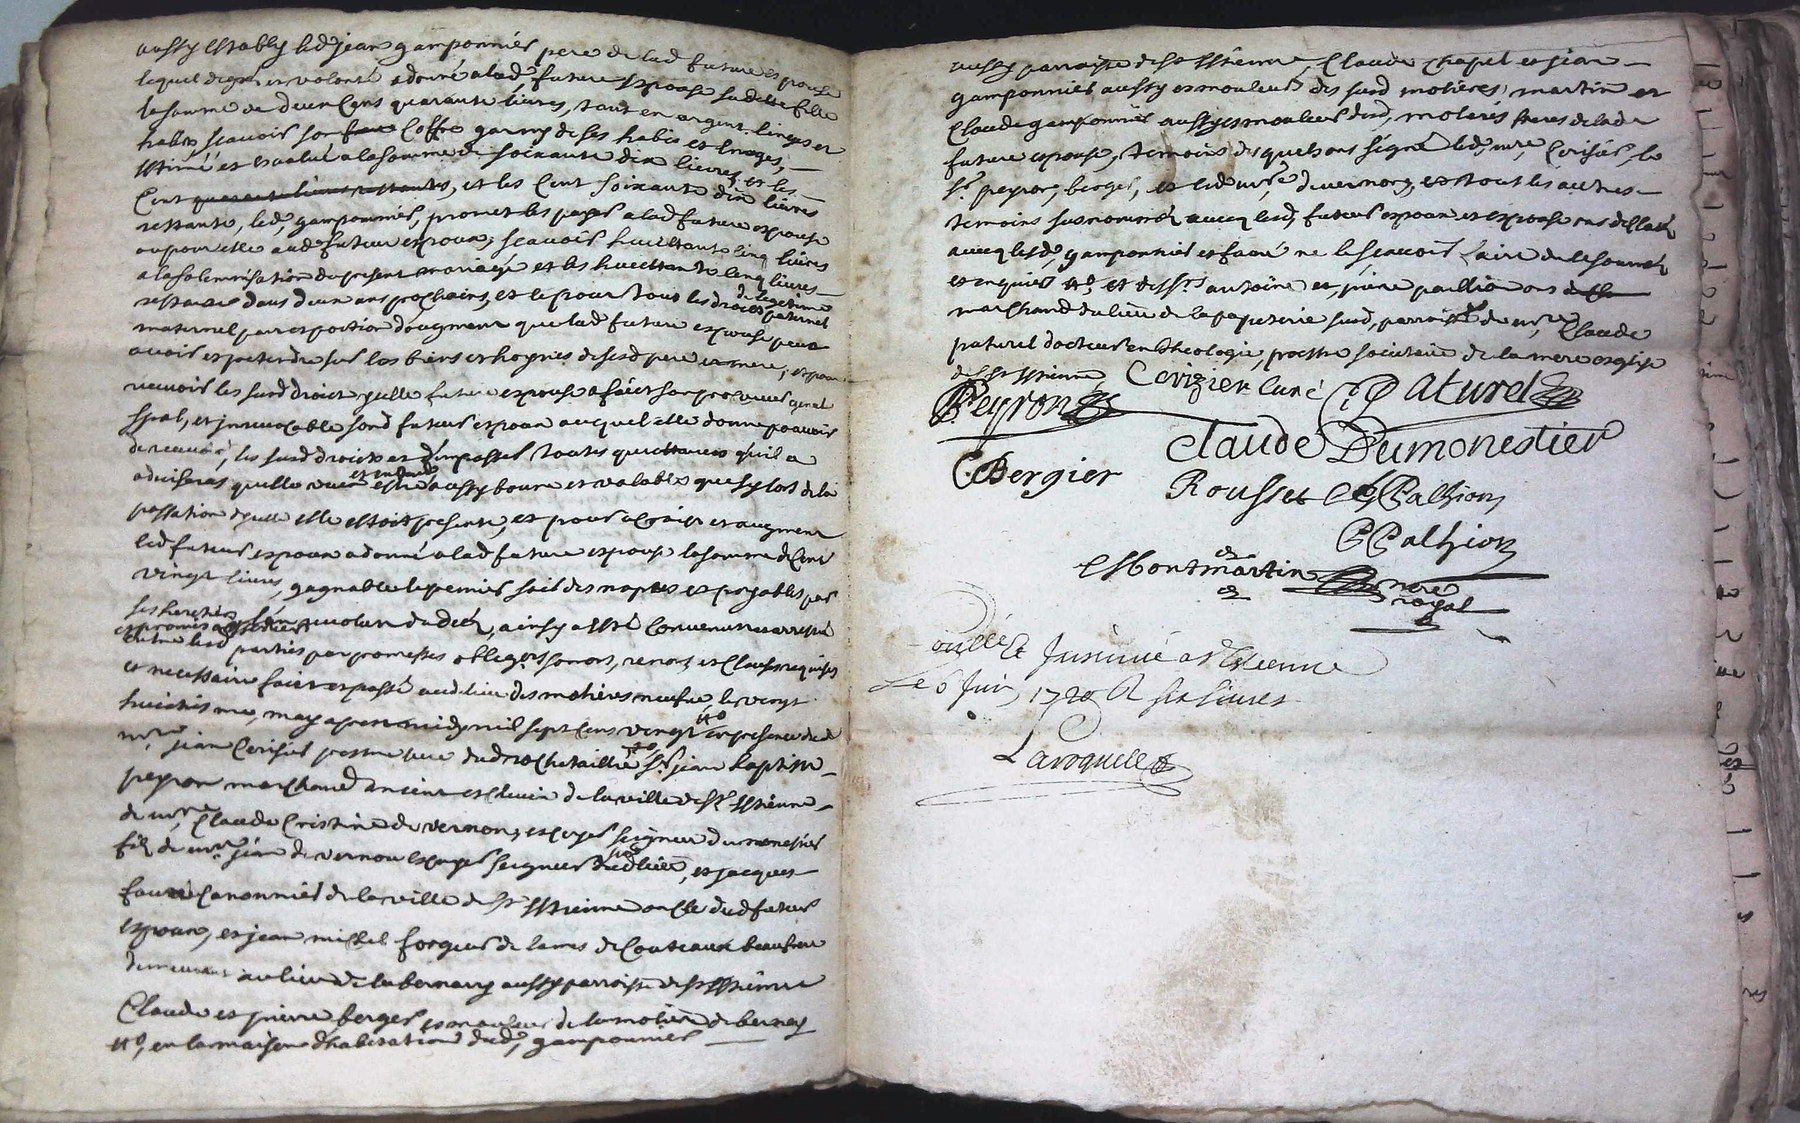 aussy estably led jean gamponnier pere de lad future espouse
lequel de gré et volonté a donné a lad, future espouse sadette fille
la somme de deux cens quarante livres, tant en argent linges et
habits scavoir son coffre garny de ses habis et linges,
estimé et evalué a la somme de soixante dix livres, et les
cent quarante livres restantes, et les cent soixante dix livres
restante, led, gamponnier, promet les payer a lad future espouse
ou pour elle aud futur espoux, scavoir huittante cinq livres
a la solemnisation du present mariage et les huittante cinq livres
restante dans deux ans prochains, et ce pour tous les droits de legitime paternel
maternel part et portion d'augment que lad future espouse peut
avoir et pretendre sur les biens et hoyries de sesd pere et mere, et pour
recevoir les susd droits icelle future espouse a fait son procureur general
spal, et irrevocable sond futur espoux auquel elle donne pouvoir
de recevoir, les susd droicts et d'en passer toutes quittances qu'il
advisera quelle veut et entend estre aussy bonne et valable que sy lors de la
passation d'icelle elle estoit presente, et pour accroist et augment
led futur espoux a donné a lad future espouse la somme de cent
vingt livres, gagnable le premier soir des noptes et payables par
ses heretiers apres son decez, ainsy a esté convenu et arresté
entre lesd parties par promesses obligations, renons, et clauses requises
et necessaire faict et passé aud lieu des molieres neufve, le vingt
huictiesme, may apres midy mil sept cens vingt en presence de
mre jean Cerisier prestre curé dud rochetaillié sr jean baptiste
peyron marchand ancien eschevin de la ville de st estienne
de mre Claude Cristine de vernon, escuyer seigneur du monestier
filz de mre jean de vernon escuyer seigneur dud lieu, et jacques
faure canonnier de la ville de st estienne oncle dud futur
espoux, et jean michel forgeur de lames de couteaux beaufrere
demeurant au lieu de la bernary aussy parroisse de st estienne
Claude et pierre berger esmouleurs de la moliere de bernay
en la maison d'habitation dud, gamponnier
aussy parroisse de st estienne, Claude chapel et jean
gamponnier aussy esmouleur des susd molieres, martin et
Claude gamponnier aussy esmouleurs desd, molieres freres de lad
future espouse, temoins desquels ont signé led, mre, Cerisier, le
sr peyron, berger, et led mre de vernon, et tout les autres
temoins susnommés avecq lesd, futurs espoux et espouse
avecq lesd, gamponnier et faure ne le scavoir faire de ce sommés
et enquis et des srs antoine et, pierre paillion
marchand du lieu de la papeterie susd, parroisse de mre, Claude
paturel docteur en theologie, prestre societaire de la mere esglise
de st estienne, Cerizier curé C Paturel
Peyron
Claude Dumonestier
C. Bergier
Rousset
Palhion
P Palhion
Montmartin nore
royal
Insinué a St Etienne
Le 6 Juin, 1720 R six livres
Laroquelle